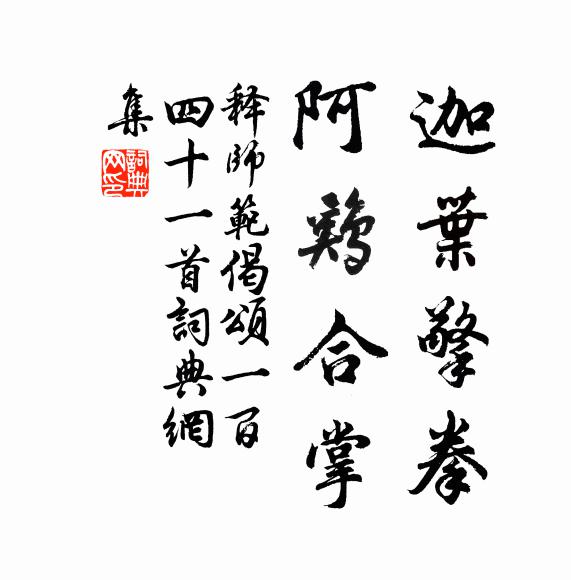 迦葉擎拳
阿鷄合掌
释師範偈頌一百
四十一首詞典網
集
詞典网印